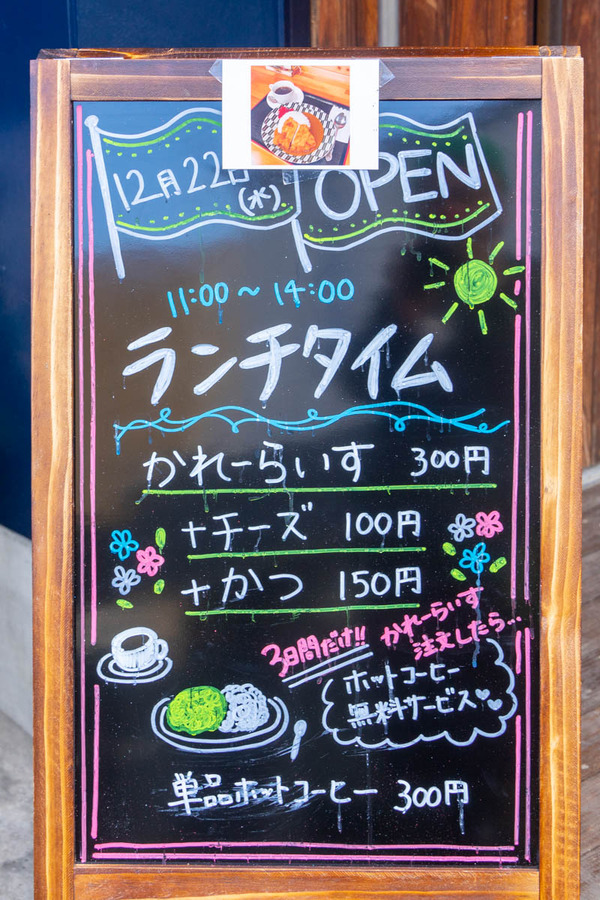 12月22日
(水)
OPEN
11:00～14:00
ランチタイム
かれーらいす 300円
+チーズ 100円
+かつ 150円
3日間だけ!! かれーらいす
注文したら…
ホットコーヒー
無料サービス♥♥
単品ホットコーヒー 300円